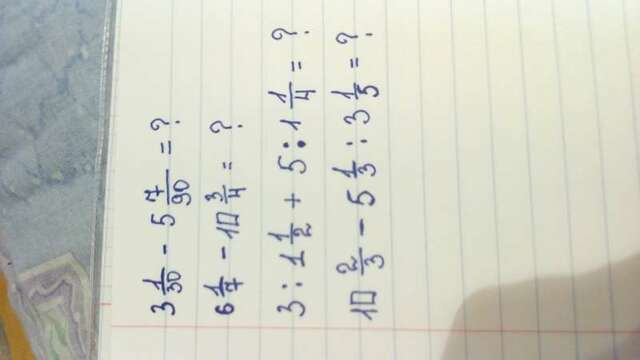 3 1/30 - 5 7/90 = ?
6 1/7 - 10 3/4 = ?
3 : 1 1/2 + 5 : 1 1/4 = ?
10 2/3 - 5 1/3 : 3 1/5 = ?